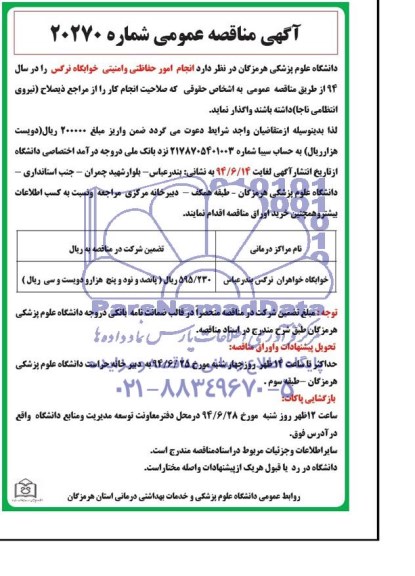 آگهی مناقصه عمومی شماره ۲۰۲۷۰
دانشگاه علوم پزشکی هرمزگان در نظر دارد انجام امور حفاظتی وامنیتی خوابگاه نرگس را در سال
۹۴ از طریق مناقصه عمومی به اشخاص حقوقی که صلاحیت انجام کار را از مراجع ذیصلاح (نیروی
انتظامی ناجا)داشته باشند واگذار نماید.
لذا بدینوسیله ازمتقاضیان واجد شرایط دعوت می گردد ضمن واریز مبلغ ۲۰۰۰۰۰ ریال(دویست
هزارریال) به حساب سیبا شماره ۲۱۷۸۷۰۵۴۰۱۰۰۳ نزد بانک ملی دروجه درآمد اختصاصی دانشگاه
ازتاریخ انتشارآگهی لغایت ۹۴/۶/۱۴ به نشانی: بندرعباس- بلوارشهید چمران - جنب استانداری -
دانشگاه علوم پزشکی هرمزگان - طبقه همکف - دبیرخانه مرکزی مراجعه ونسبت به کسب اطلاعات
بیشتروهمچنین خرید اوراق مناقصه اقدام نمایند.
نام مراکز درمانی
تضمین شرکت در مناقصه به ریال
خوابگاه خواهران نرگس بندرعباس
۵۹۵/۲۳۰ ریال ( پانصد و نود و پنج هزارو دویست و سی ریال )
توجه : مبلغ تضمین شرکت در مناقصه منحصرا در قالب ضمانت نامه بانکی دروجه دانشگاه علوم پزشکی
هرمزگان طبق شرح مندرج در اسناد مناقصه.
تحویل پیشنهادات واوراق مناقصه:
حداکثر تا ساعت ۱۴ظهر روزچهار شنبه مورخ ۹۴/۶/۲۵ به دبیر خانه حراست دانشگاه علوم پزشکی
هرمزگان -طبقه سوم .
بازگشایی پاکات:
ساعت ۱۲ظهر روز شنبه مورخ ۹۴/۶/۲۸ درمحل دفترمعاونت توسعه مدیریت ومنابع دانشگاه واقع
درآدرس فوق.
سایراطلاعات وجزئیات مربوط دراسنادمناقصه مندرج است.
دانشگاه در رد یا قبول هریک ازپیشنهادات واصله مختاراست.
روابط عمومی دانشگاه علوم پزشکی و خدمات بهداشتی درمانی استان هرمزگان
ParsNamadData
۰۲۱-۸۸۳۴۹۶۷۰-۵